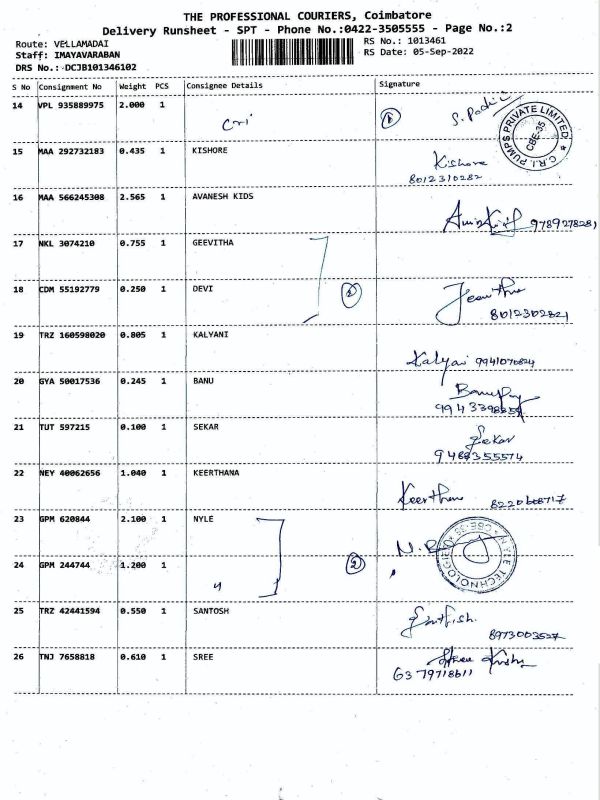 THE PROFESSIONAL COURIERS, Coimbatore
Delivery Runsheet - SPT - Phone No.:0422-3505555 - Page No.:2
Route: VELLAMADAI
Staff: IMAYAVARABAN
DRS No.:-DCJB101346102
RS No.: 1013461
RS Date: 05-Sep-2022
S No Consignment No Weight PCS Consignee Details Signature
14 VPL 935889975 2.000 1 Cri 1
C.R.I. PUMPS PRIVATE LIMITED
CBE-35
15 MAA 292732183 0.435 1 KISHORE Kishore
8012310282
16 MAA 566245308 2.565 1 AVANESH KIDS
17 NKL 3074210 0.755 1 GEEVITHA
18 CDM 55192779 0.250 1 DEVI 2
8012302821
19 TRZ 160598020 0.805 1 KALYANI Kalyai 9941070824
20 GYA 50017536 0.245 1 BANU
21 TUT 597215 0.100 1 SEKAR Sekar
9488355574
22 NEY 40062656 1.040 1 KEERTHANA Keerthana
8220608717
23 GPM 620844 2.100 1 NYLE
NYLE TECHNOLOGIES
CBE-35
24 GPM 244744 1.200 1 " 2
25 TRZ 42441594 0.550 1 SANTOSH
8973003527
26 TNJ 7658818 0.610 1 SREE
6379718611